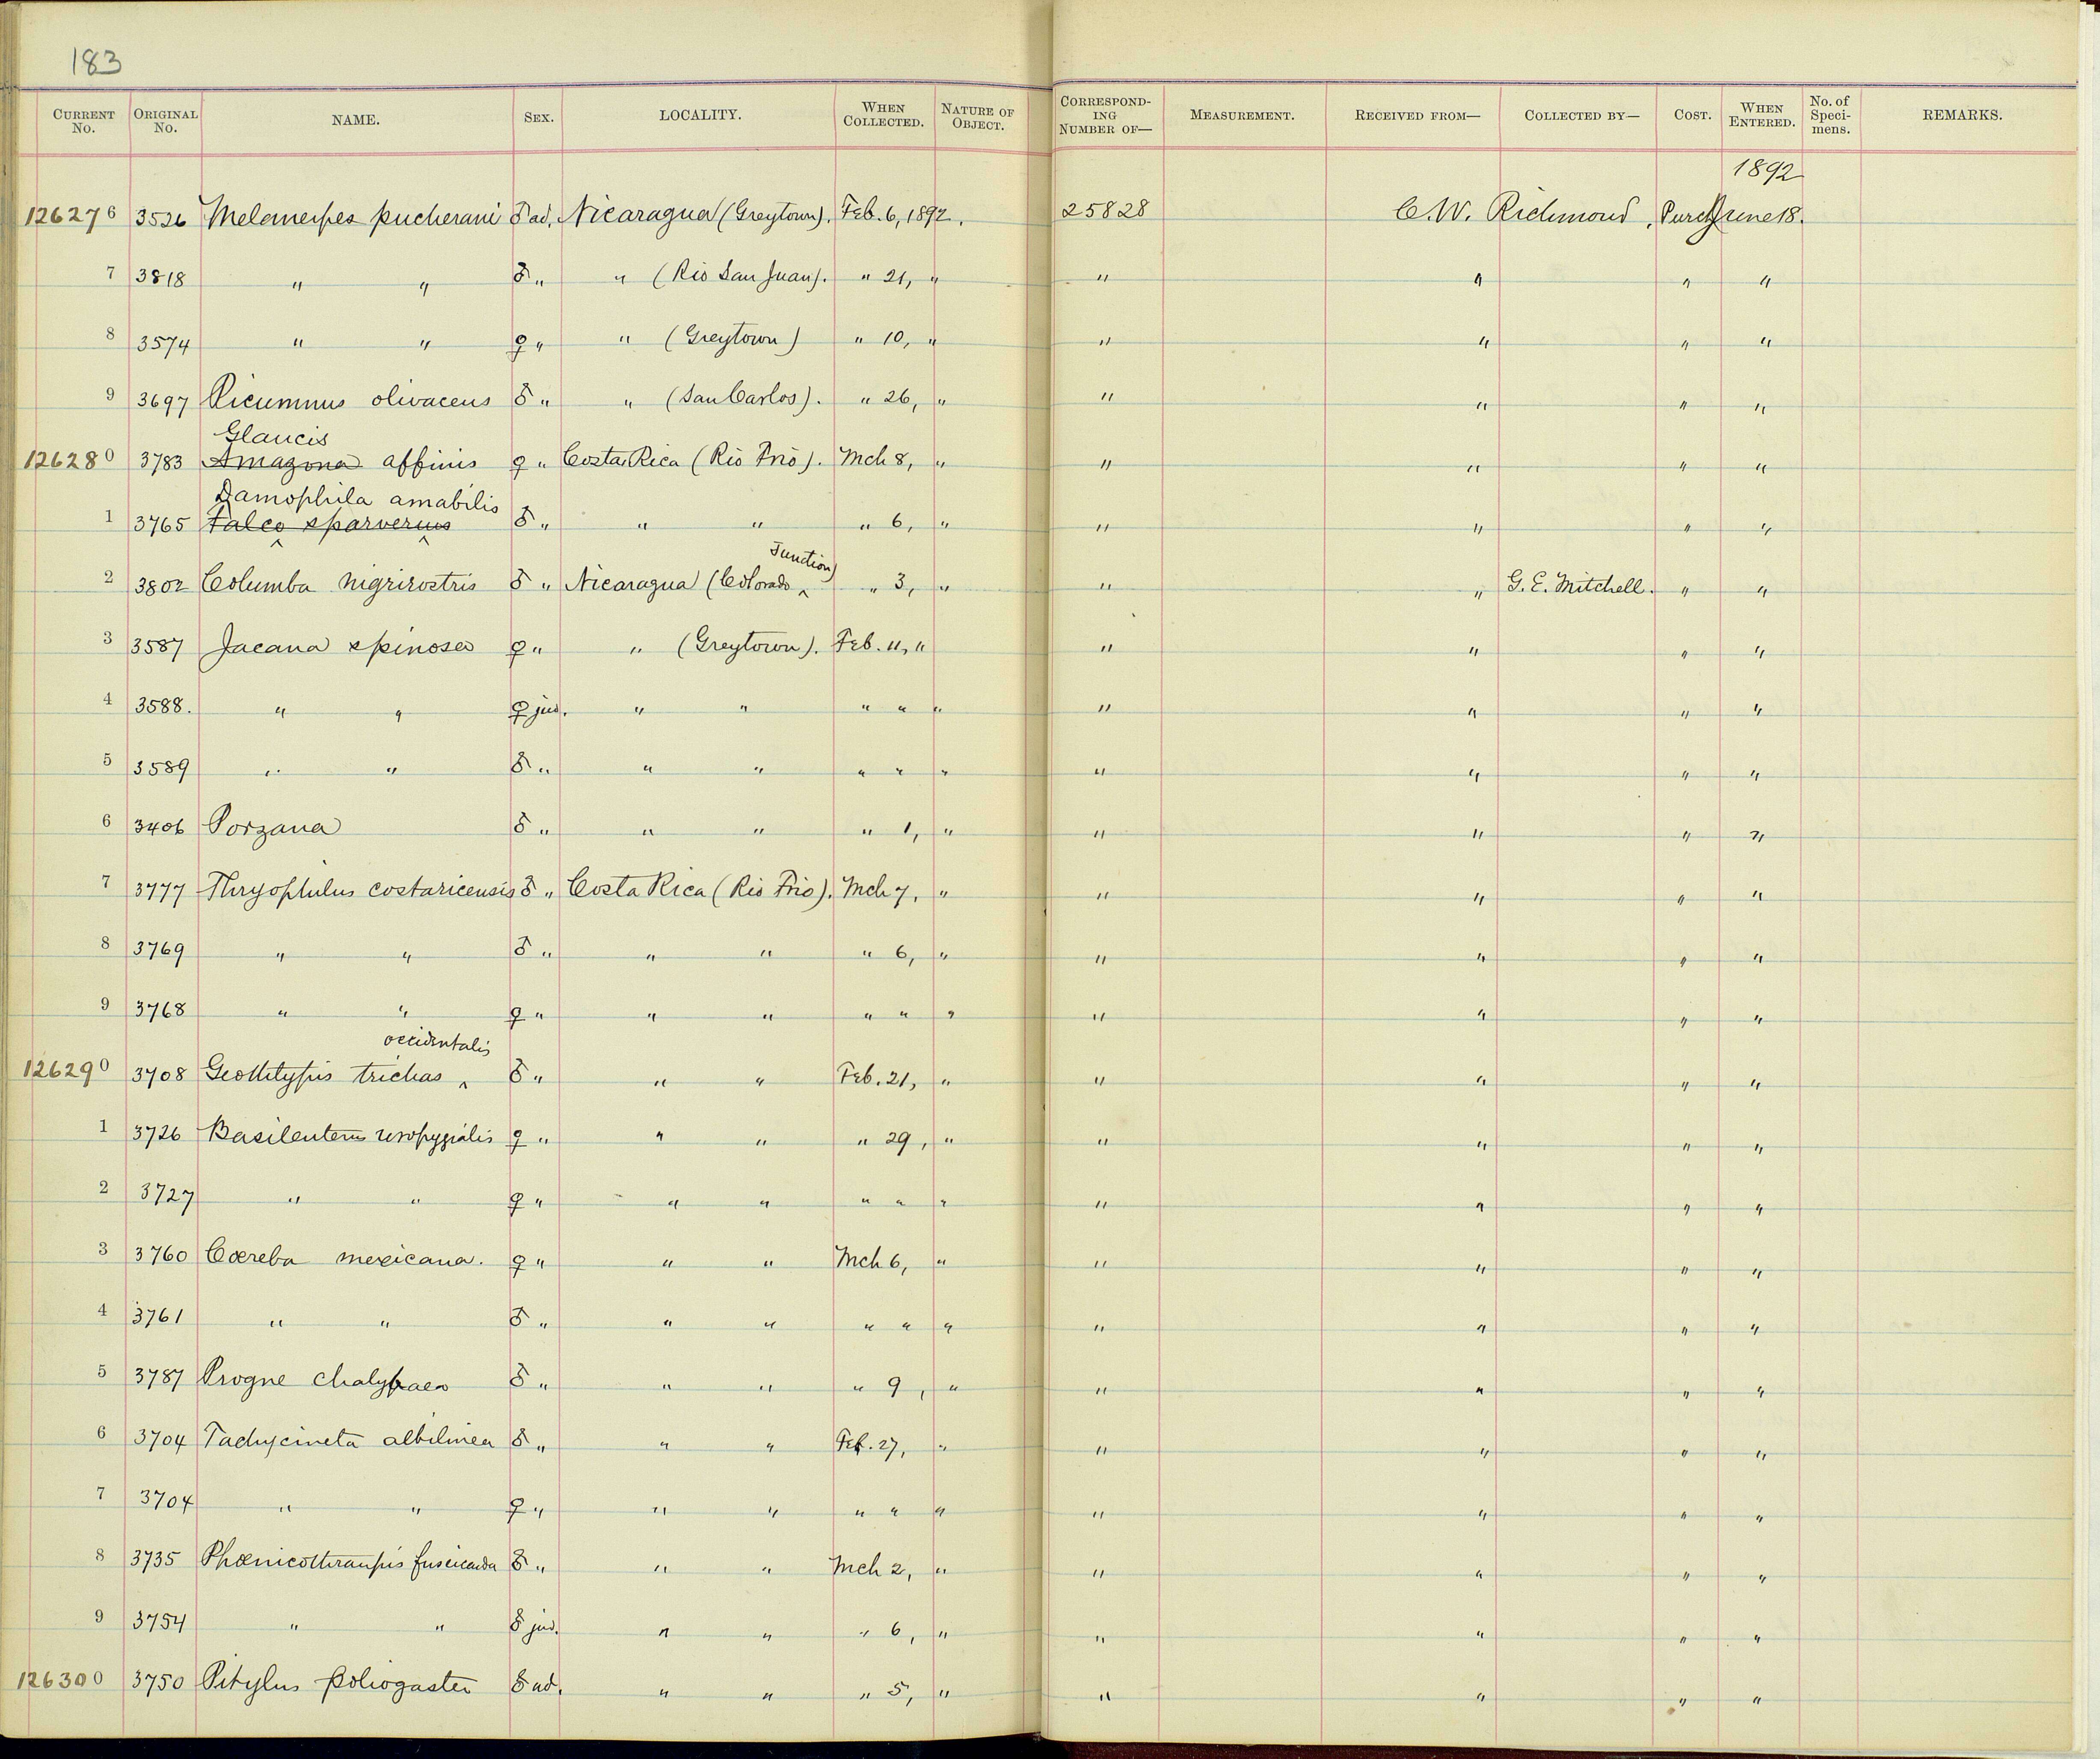 183
CURRENT No. ORIGINAL No. NAME. SEX. LOCALITY. WHEN COLLECTED. NATURE OF OBJECT. CORRESPONDING NUMBER OF— MEASUREMENT. RECEIVED FROM— COLLECTED BY— COST. WHEN ENTERED. No. of Specimens. REMARKS.
1892
126276 3526 Melanerpes pucherani ♂ ad. Nicaragua (Greytown). Feb. 6, 1892. 25828 C. W. Richmond, Purch June 18.
7 3818 " " ♂ " " (Rio San Juan). " 21, " " " " "
8 3574 " " ♀ " " (Greytown) " 10, " " " " "
9 3697 Picumnus olivaceus ♂ " " (San Carlos). " 26, " " " " "
Glaucis
126280 3783 Amazona affinis ♀ " Costa Rica (Rio Frio). Mch 8, " " " " "
Damophila amabilis
1 3765 Falco sparverius ♂ " " " " 6, " " " " "
Junction)
2 3802 Columba nigrirostris ♂ " Nicaragua (Colorado ‸ " 3, " " " G. E. Mitchell. " "
3 3587 Jacana spinosa ♀ " " (Greytown). Feb. 11, " " " " "
4 3588. " " ♀ juv. " " " " " " " " "
5 3589 " " ♂ " " " " " " " " " "
6 3406 Porzana ♂ " " " " 1, " " " " "
7 3777 Thryophilus costaricensis ♂ " Costa Rica (Rio Frio). Mch 7, " " " " "
8 3769 " " ♂ " " " " 6, " " " " "
9 3768 " " ♀ " " " " " " " " " "
occidentalis
126290 3708 Geothlypis trichas ‸ ♂ " " " Feb. 21, " " " " "
1 3726 Basileuterus uropygialis ♀ " " " " 29, " " " " "
2 3727 " " ♀ " " " " " " " " " "
3 3760 Cœreba mexicana. ♀ " " " Mch 6, " " " " "
4 3761 " " ♂ " " " " " " " " " "
5 3787 Progne chalybaea ♂ " " " " 9, " " " " "
6 3704 Tachycineta albilinea ♂ " " " Feb. 27, " " " " "
7 3704 " " ♀ " " " " " " " " " "
8 3735 Phœnicothraupis fuscicauda ♂ " " " Mch 2, " " " " "
9 3754 " " ♂ juv. " " " 6, " " " " "
126300 3750 Pitylus poliogaster ♂ ad. " " " 5, " " " " "